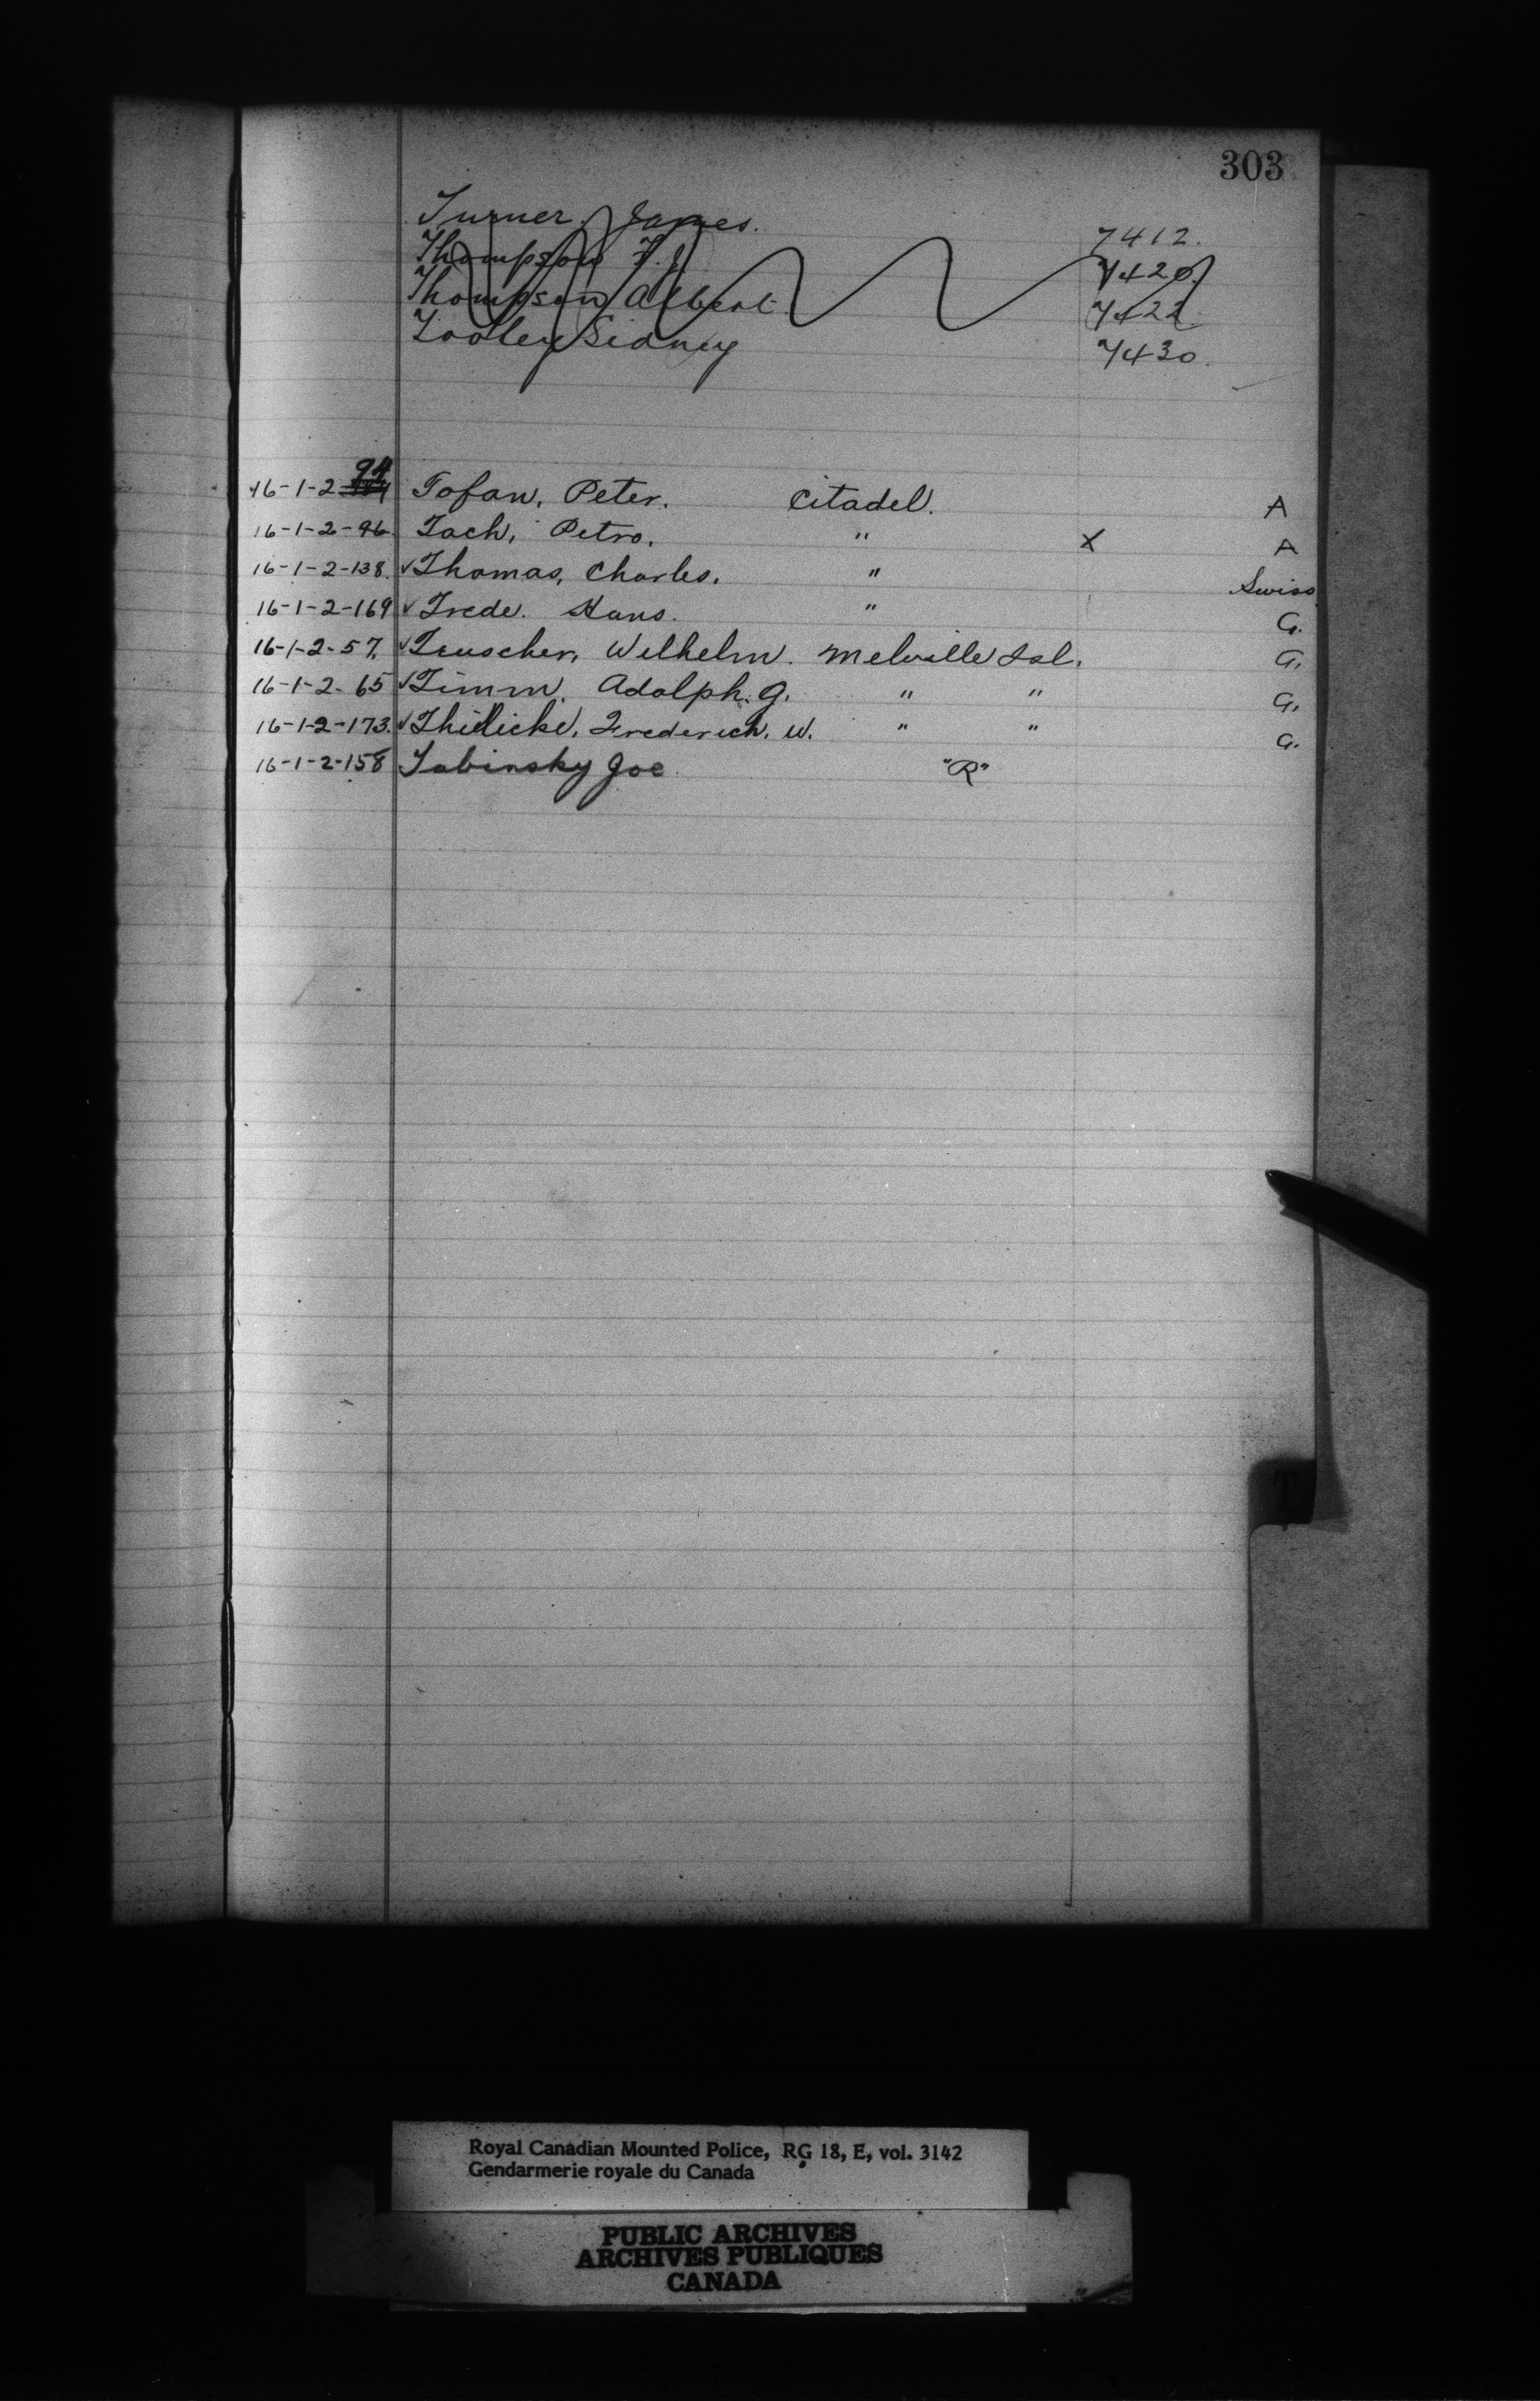 303
Turner, James. 7412.
Thompson F.J. 7420.
Thompson Albert 7422
Tooley Sidney 7430.
94
16-1-2- Tofan, Peter. Citadel. A
16-1-2-96. Tach, Petro. " X A
16-1-2-138. ✓Thomas, Charles. " Swiss.
16-1-2-169 ✓Trede. Hans. " G.
16-1-2-57. ✓Teuscher, Wilhelm. Melville Isl. G.
16-1-2-65 ✓Timm, Adolph. G. " " G.
16-1-2-173. ✓Thielicke, Frederich. W. " " G.
16-1-2-158 Tabinsky Joe "R"
T
Royal Canadian Mounted Police, RG 18, E, vol. 3142
Gendarmerie royale du Canada
PUBLIC ARCHIVES
ARCHIVES PUBLIQUES
CANADA